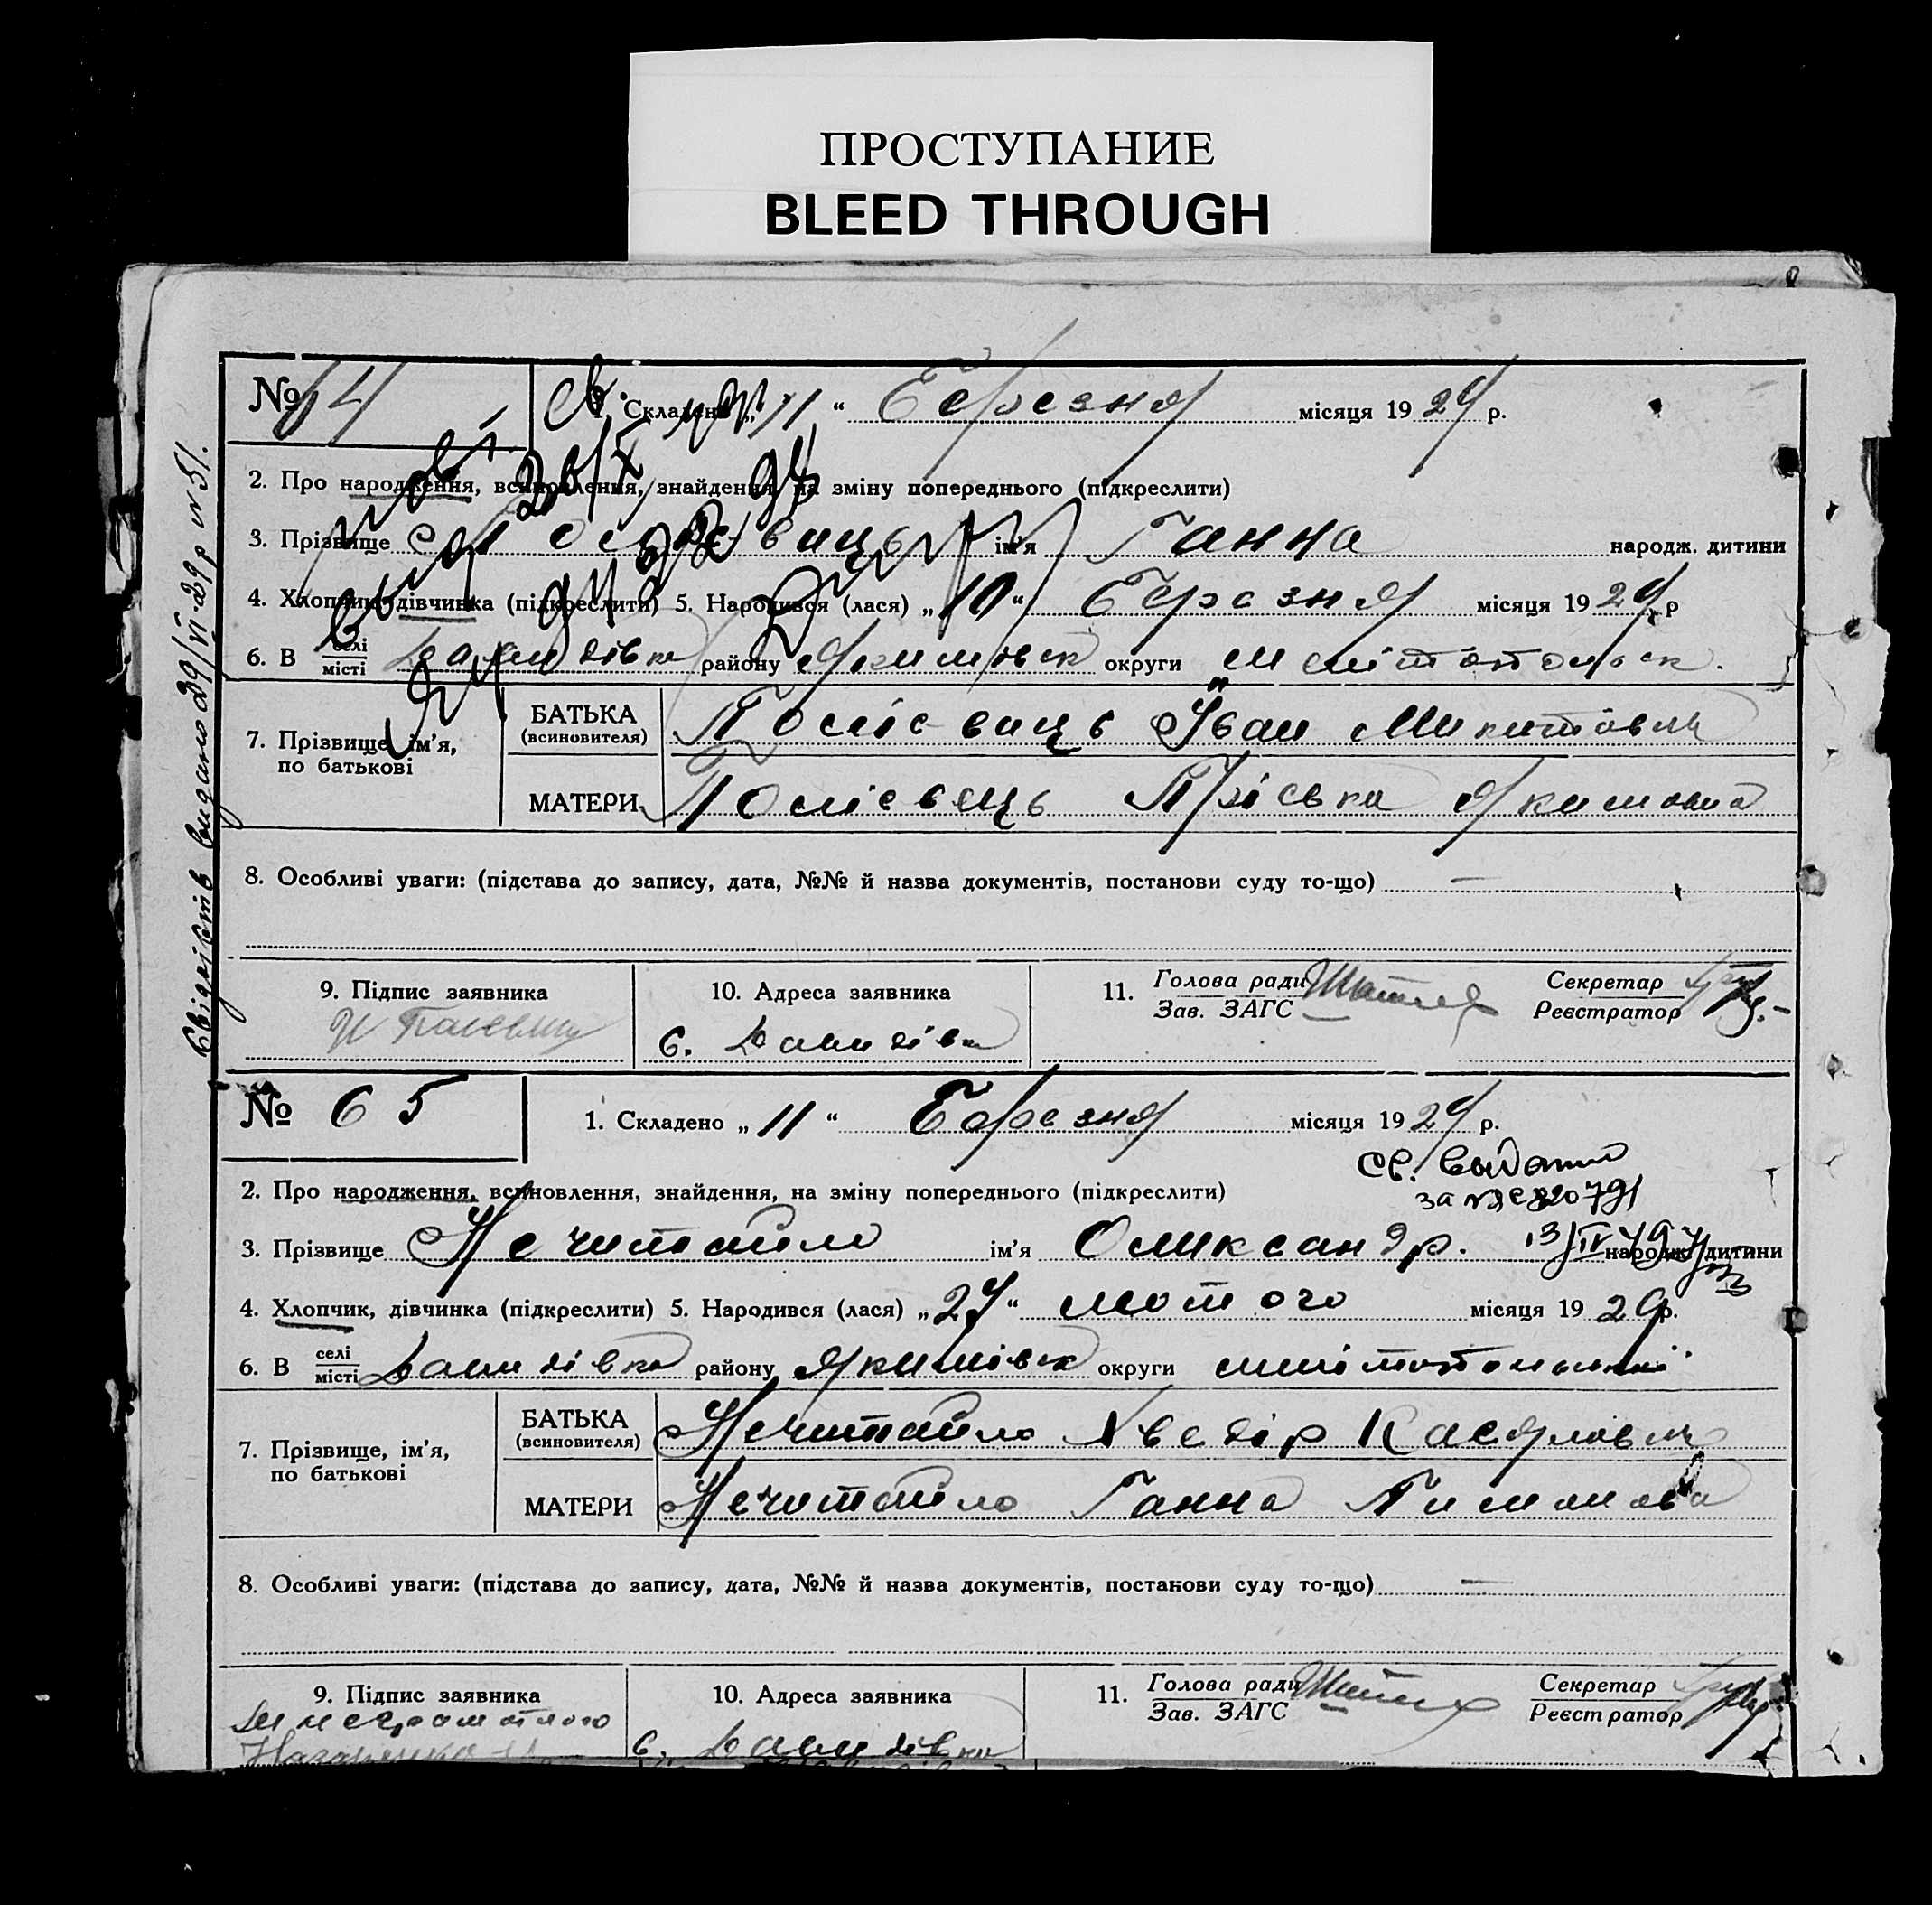 ПРОСТУПАНИЕ
BLEED THROUGH
Свідоцтв видано 29/VI-29р N 51.
№ 64
1. Складено „11“ Березня місяця 1929 р.
2. Про народження, всиновлення, знайдення, на зміну попереднього (підкреслити)
3. Прізвище Полієвець ім’я Ганна народж. дитини
4. Хлопчик, дівчинка (підкреслити) 5. Народився (лася) „10“ Березня місяця 1929 р
6. В селі місті Давидівка району Якимівск округи Мелітопольск.
7. Прізвище, ім’я, по батькові
БАТЬКА (всиновителя) Полієвець Іван Микитович
МАТЕРИ Полієвець Пріська Якимовна
8. Особливі уваги: (підстава до запису, дата, №№ й назва документів, постанови суду то-що) —
9. Підпис заявника
10. Адреса заявника
с. Давидівка
11. Голова ради
Зав. ЗАГС
Секретар
Реєстратор
№ 65
1. Складено „11“ Березня місяця 1929 р.
св. выдано
за № 220791
2. Про народження, всиновлення, знайдення, на зміну попереднього (підкреслити)
3. Прізвище Нечитайло ім’я Олександр. народж. дитини
4. Хлопчик, дівчинка (підкреслити) 5. Народився (лася) „27“ лютого місяця 1929 р.
6. В селі місті Давидівка району Якимівск округи
7. Прізвище, ім’я, по батькові
БАТЬКА (всиновителя) Нечитайло Хведір Касянович
МАТЕРИ Нечитайло Ганна
8. Особливі уваги: (підстава до запису, дата, №№ й назва документів, постанови суду то-що) —
9. Підпис заявника
неграмотного
10. Адреса заявника
с. Давидівка
11. Голова ради
Зав. ЗАГС
Секретар
Реєстратор